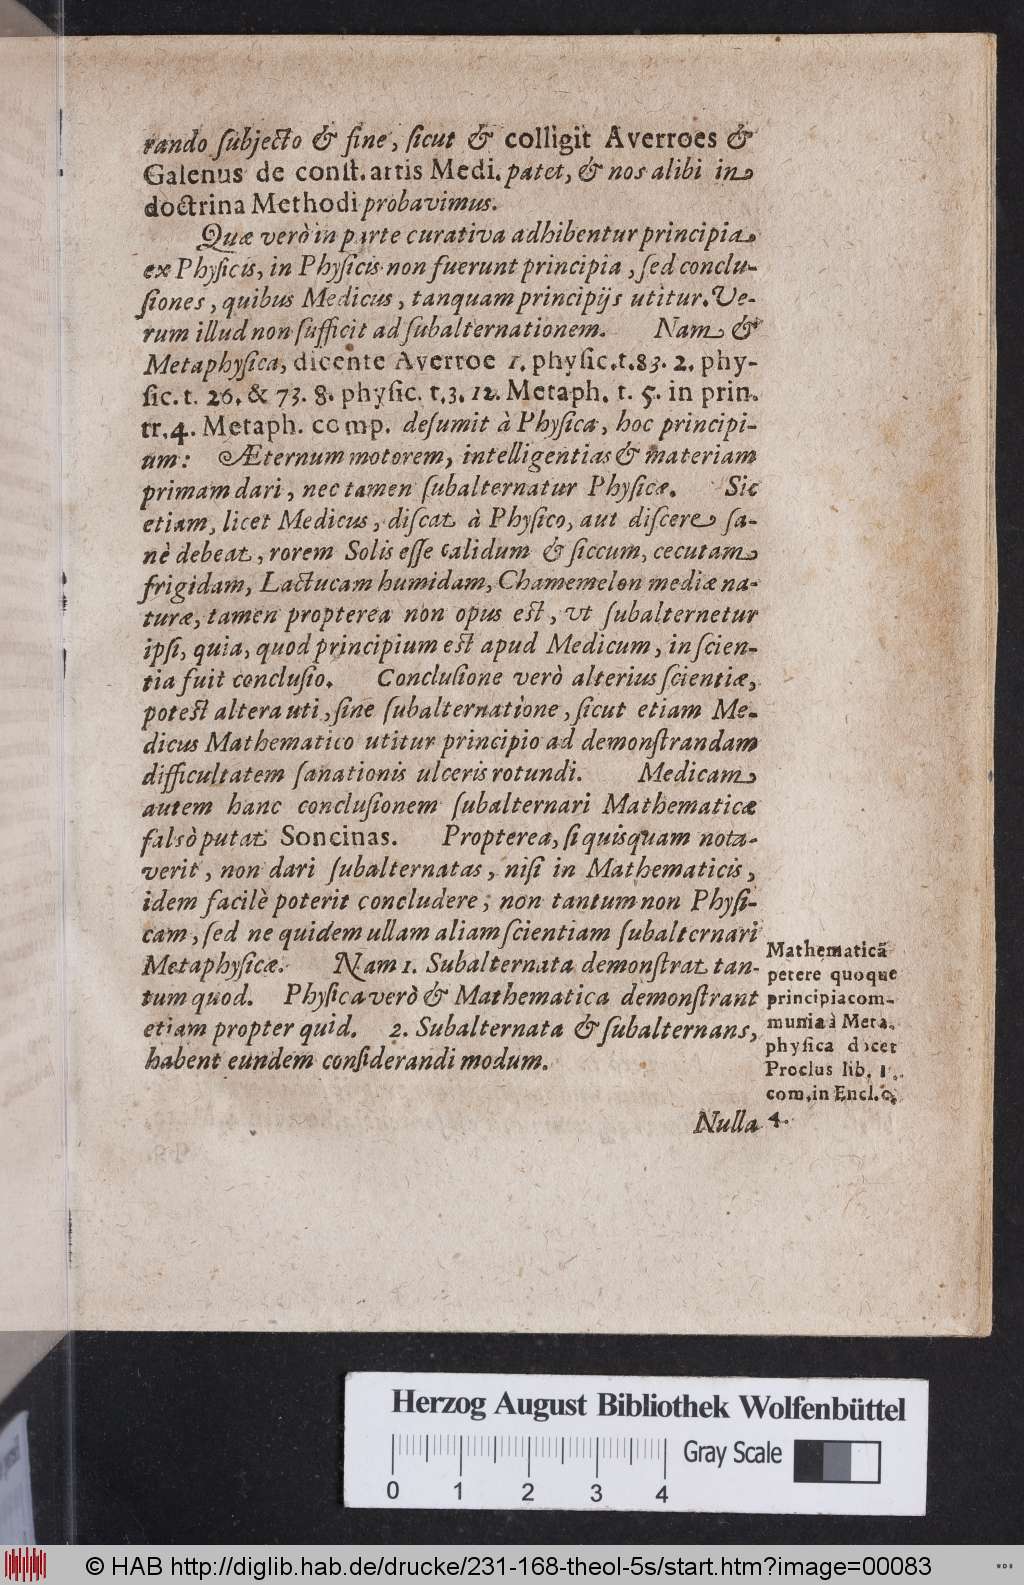 rando ſubjecto & fine, ſicut & colligit Averroes &
Galenus de conſt. artis Medi. patet, & nos alibi in
doctrina Methodi probavimus.
Quæ verò in parte curativa adhibentur principia
ex Phyſicis, in Phyſicis non fuerunt principia, ſed conclu-
ſiones, quibus Medicus, tanquam principijs utitur. Ve-
rum illud non ſufficit ad ſubalternationem. Nam &
Metaphyſica, dicente Averroe 1. phyſic. t. 83. 2. phy-
ſic. t. 26. & 73. 8. phyſic. t. 3. 12. Metaph. t. 5. in prin.
tr. 4. Metaph. comp. deſumit à Phyſica, hoc principi-
um: Æternum motorem, intelligentias & materiam
primam dari, nec tamen ſubalternatur Phyſicæ. Sic
etiam, licet Medicus, diſcat à Phyſico, aut diſcere ſa-
nè debeat, rorem Solis eſſe calidum & ſiccum, cecutam
frigidam, Lactucam humidam, Chamemelon mediæ na-
turæ, tamen propterea non opus est, ut ſubalternetur
ipſi, quia, quod principium est apud Medicum, in ſcien-
tia fuit concluſio. Concluſione verò alterius ſcientiæ,
potest altera uti, ſine ſubalternatione, ſicut etiam Me-
dicus Mathematico utitur principio ad demonſtrandam
difficultatem ſanationis ulceris rotundi. Medicam
autem hanc concluſionem ſubalternari Mathematicæ
falsò putat Soncinas. Propterea, ſi quisquam nota-
verit, non dari ſubalternatas, niſi in Mathematicis,
idem facilè poterit concludere, non tantum non Phyſi-
cam, ſed ne quidem ullam aliam ſcientiam ſubalternari
Metaphyſicæ. Nam 1. Subalternata demonſtrat tan-
tum quod. Phyſica verò & Mathematica demonſtrant
etiam propter quid. 2. Subalternata & ſubalternans,
habent eundem conſiderandi modum.
Mathematicā
petere quoque
principia com-
munia à Meta-
phyſica docet
Proclus lib. 1.
com. in Encl. c.
4.
Nulla
Herzog August Bibliothek Wolfenbüttel
0 1 2 3 4
Gray Scale
© HAB http://diglib.hab.de/drucke/231-168-theol-5s/start.htm?image=00083